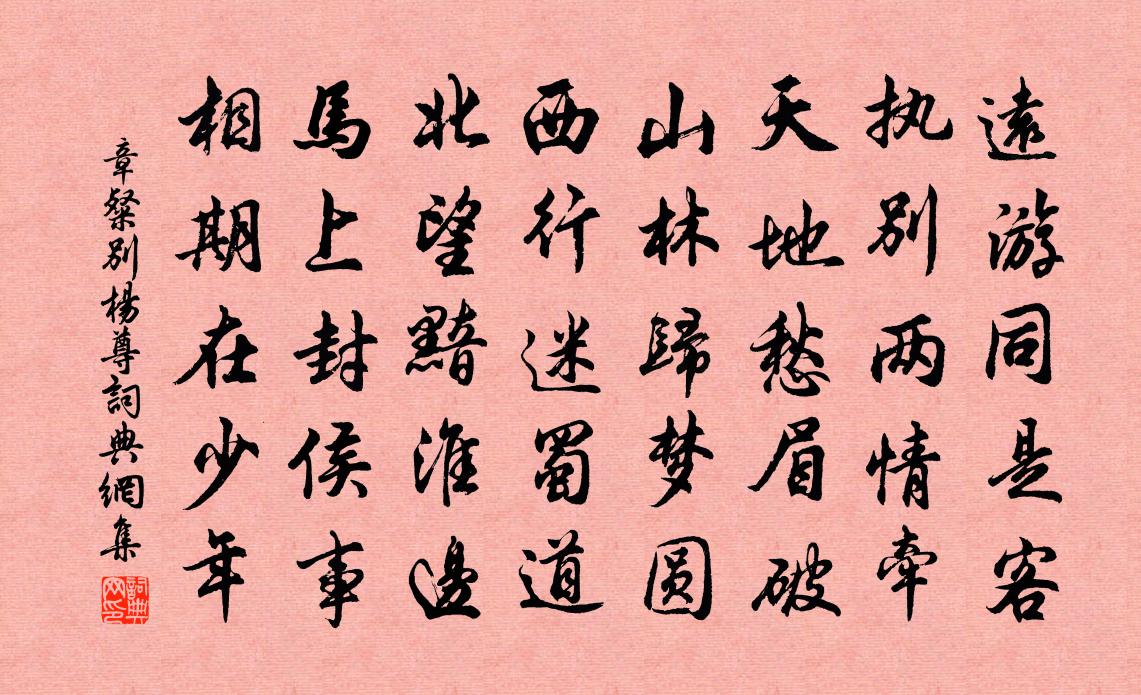 遠游同是客
执别两情牵
天地愁眉破
山林歸梦圆
西行迷蜀道
北望黯淮邊
馬上封侯事
相期在少年
章粲别楊尊詞典網集
詞典网印